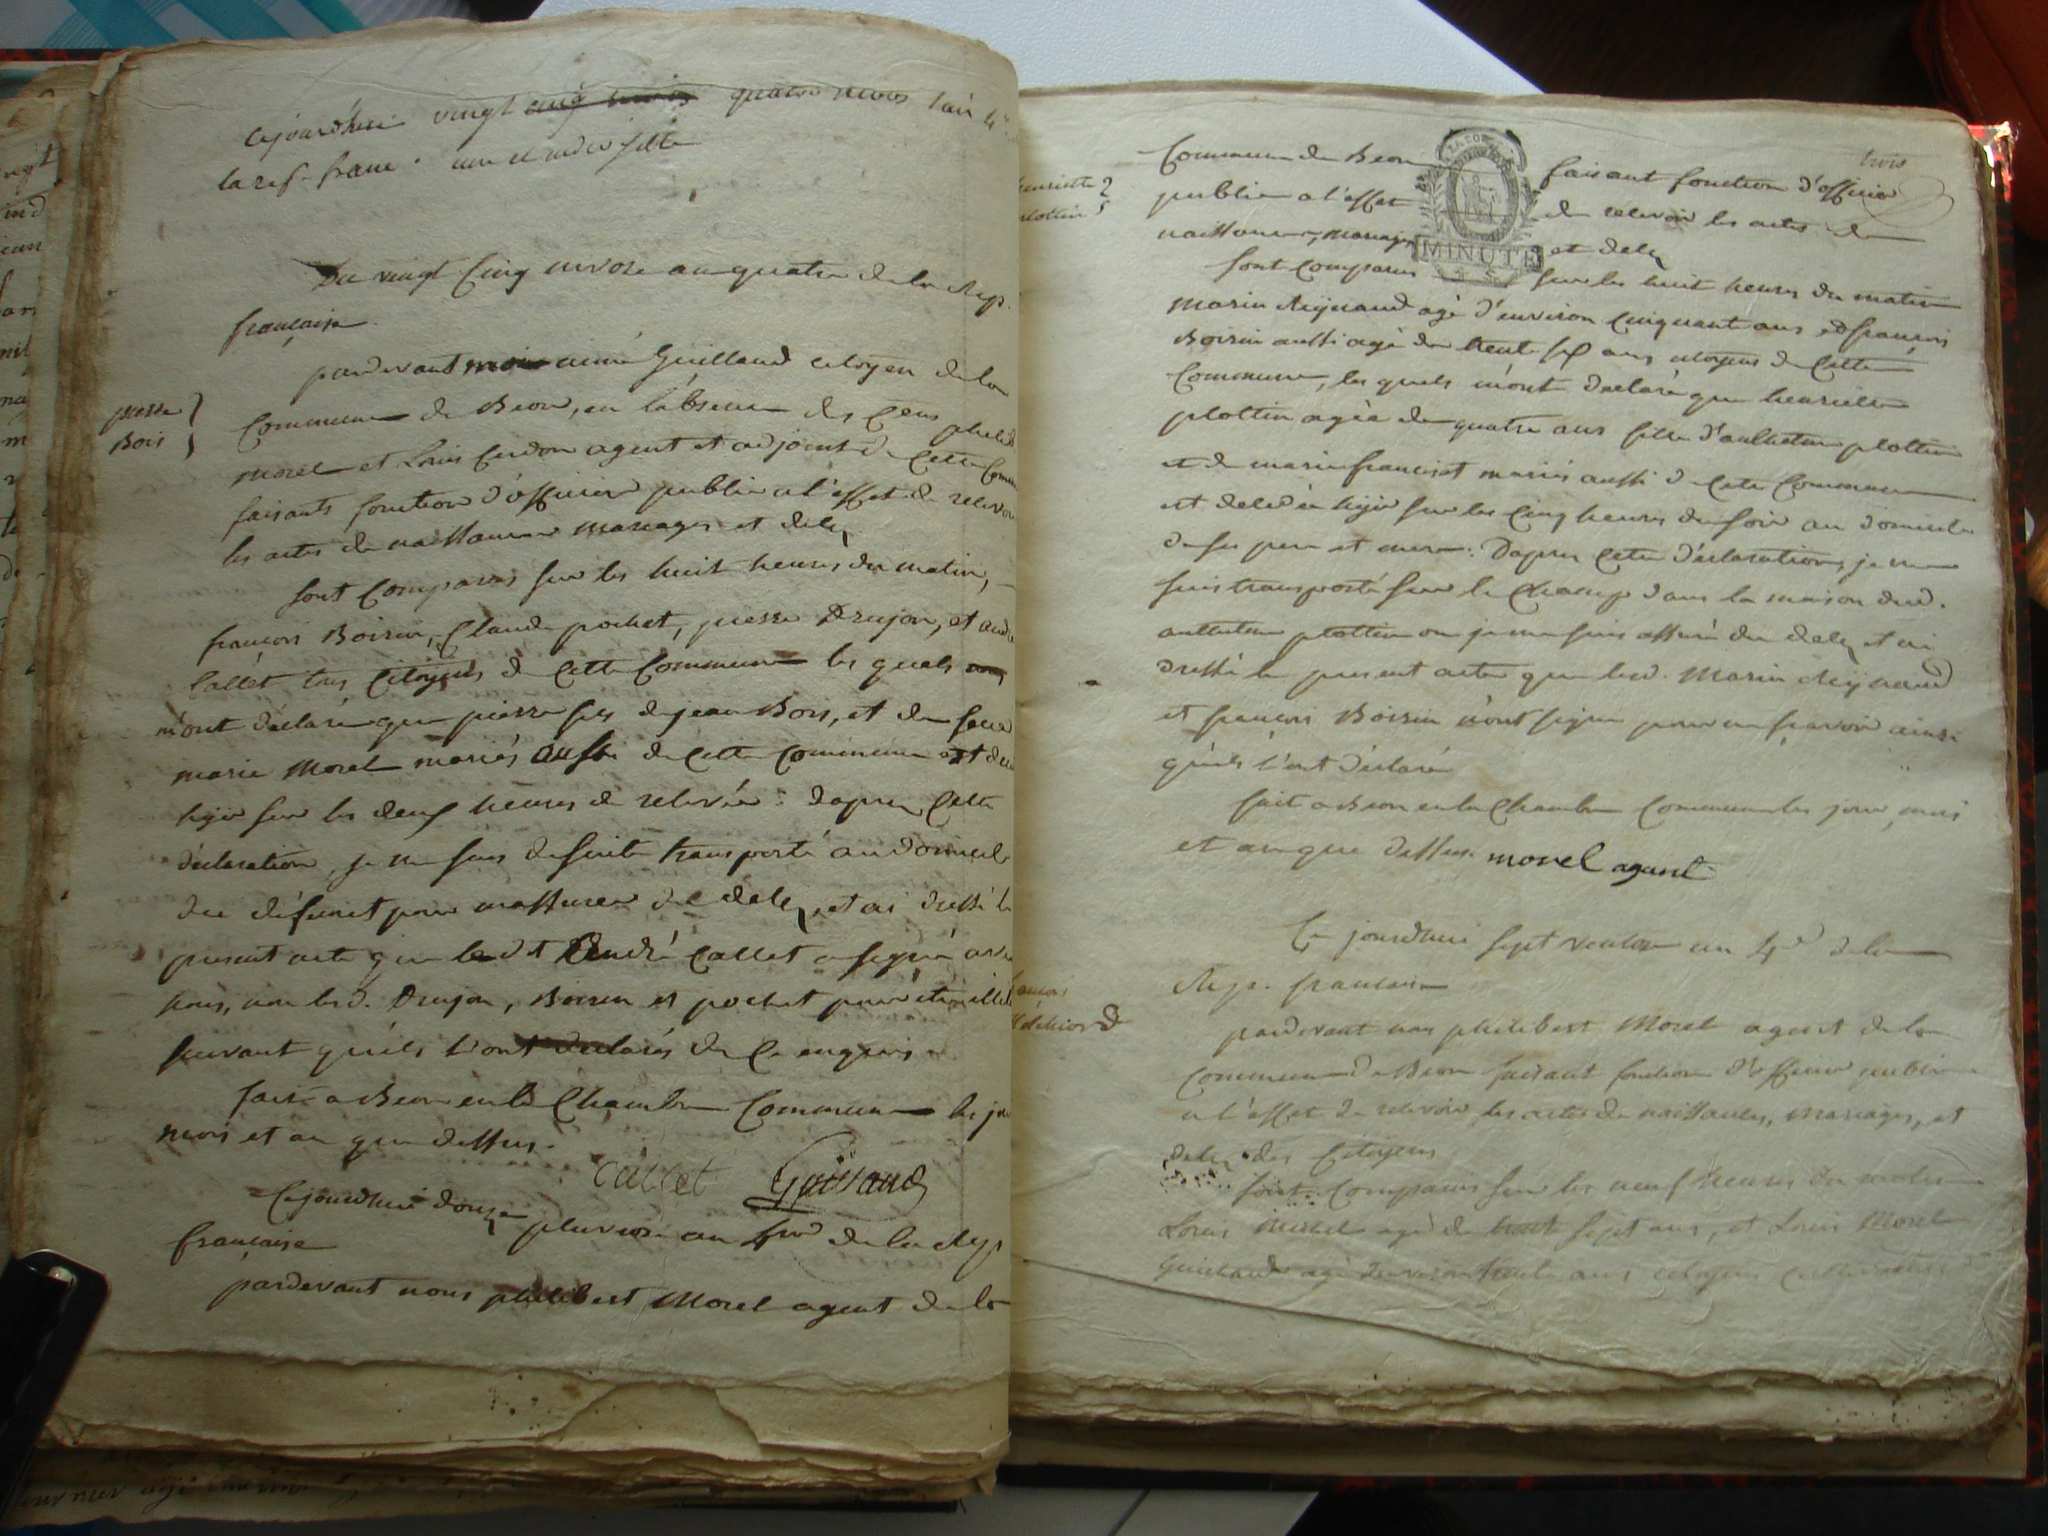 Cejourdhui vingt cinq nivos quatre nivos l'an 4
la rep. franc.
Du vingt Cinq nivose an quatre de la Rep.
francaise.
pierre
Bois
pardevant moi aimé Guilland citoyen de la
Commune de Beon, en l'absence des Cens philib
Morel et Louis Cerdon agent et adjoint de Cette Comm
faisants fonction d'officier public a l'effet de relevoir
les actes de naissance mariages et deles
sont Comparus sur les huit heures du matin,
françois Boirin, Claude pochet, pierre Drujon, et andre
Callet tous Citoyens de Cette Commune les quels
m'ont déclaré que pierre fils de jean Bois, et de feue
marie Morel mariés aussi de Cette Commune est de
hijer sur les deux heures de relevée : dapres Cette
déclaration, je me suis desuite transporté au domicile
du défunct pour massurer del deles, et ai dressé le
present acte que led t André Callet a signé avec
nous, non lesd. Drujon, Boirin et pochet pour être illit
suivant qu'ils l'ont declarés de Ce enquis.
fait a Beon en la Chambre Commune les jour
mois et an que dessus.
Callet Guilland
Cejourdhui douze pluviose an 4 de la Rep
francaise
pardevant nous philibert Morel agent de la
trois
henriette
plottin
Commune de Beon faisant fonction d'officier
public a l'effet de relevoir les actes de
naissance, mariages et deles
MINUTE
sont Comparus sur les huit heures du matin
Marin Reijnaud agé d'environ Cinquante ans et françois
Boirin aussi agé de trente six ans citoyens de Cette
Commune, les quels m'ont declaré que henriette
plottin agée de quatre ans fille d'anthelme plottin
et de marie françoise mariés aussi de Cette Commune
est deledée hijer sur les Cinq heures du soir au domicile
de ses pere et mere : Dapres Cette déclaration, je me
suis transporté sur le Champ dans la maison dud.
anthelme plottin ou je me suis assuré du deles et ai
dressé le present acte que lesd. Marin Reijnaud
et françois Boirin n'ont signé pour ne scavoir ainsi
qu'ils l'ont déclaré
fait a Beon en la Chambre Commune les jour, mois
et an que dessus. morel agent
Ce jourdhui sept ventose an 4 de la
Rep. francaise
pardevant nous philibert Morel agent de la
Commune de Beon faisant fonction d'officier public
a l'effet de relevoir les actes de naissances, mariages, et
deles des Citoyens
sont Comparus sur les neuf heures du matin
Louis Michel agé de trente sept ans, et Louis Morel
Guilland agé d'environ trente ans citoyens